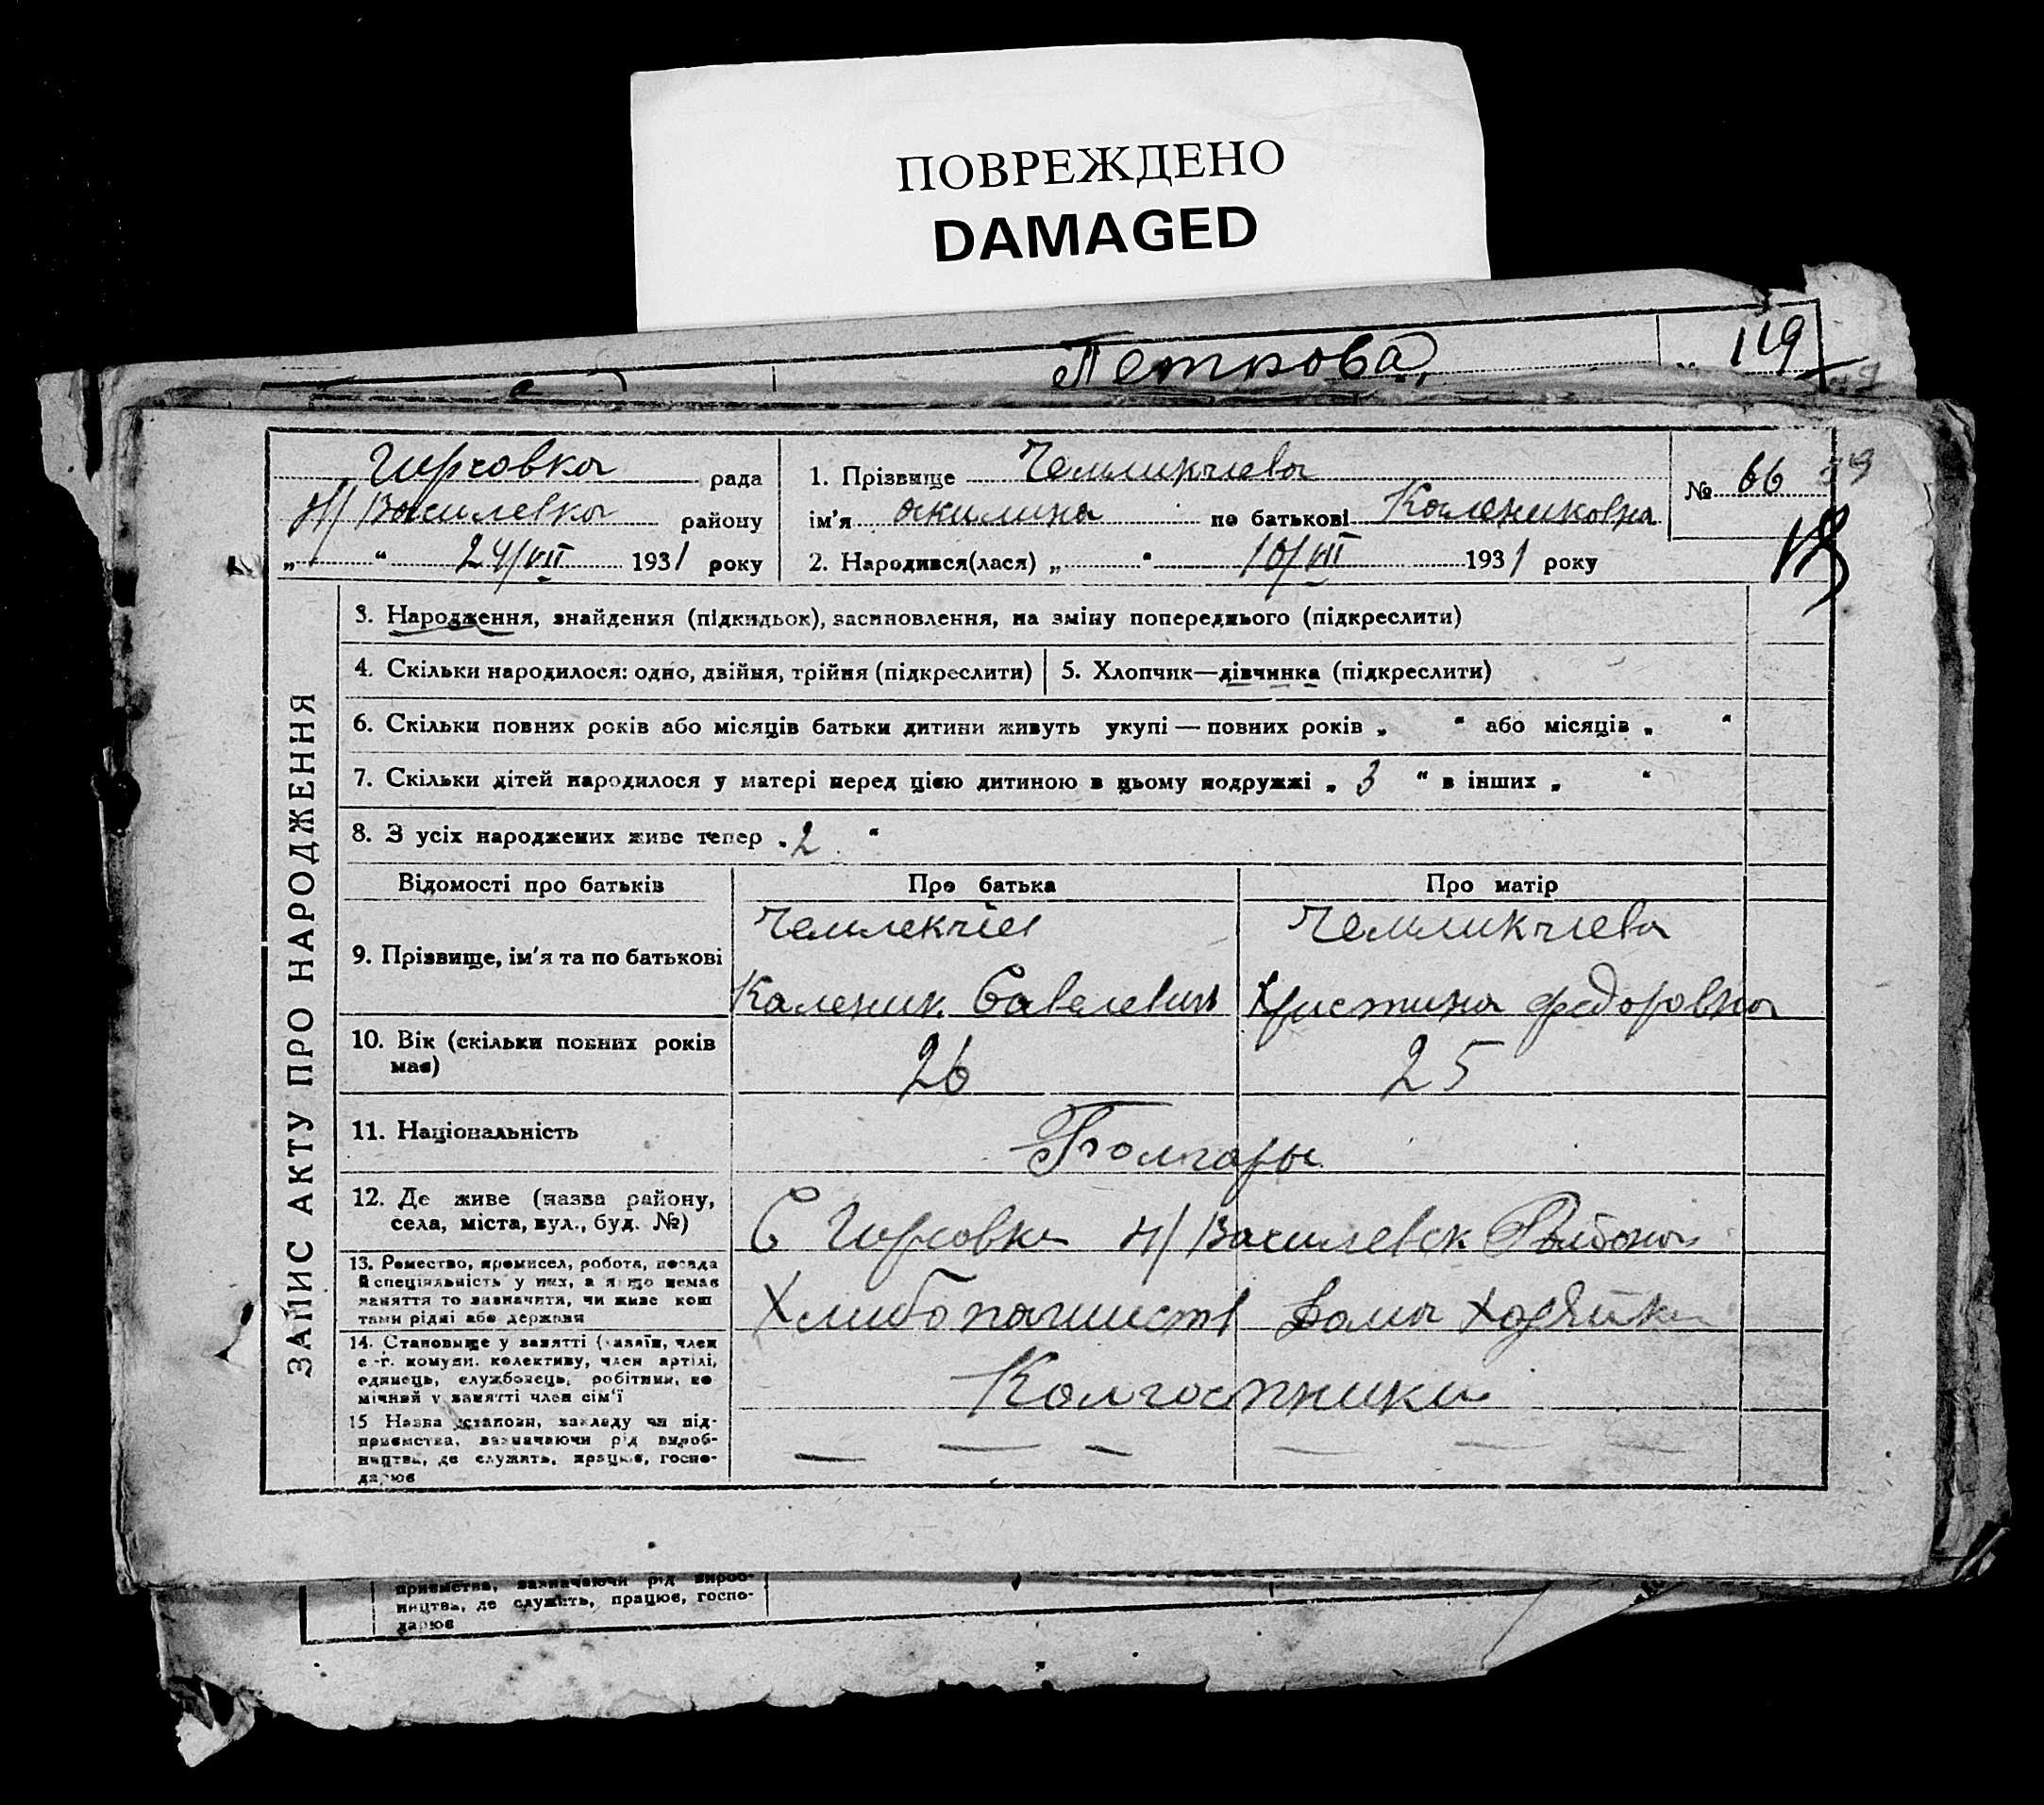 ПОВРЕЖДЕНО
DAMAGED
Петкова
119
Гирсовка рада
Н/Василевка району
„ “ 24/VII 1931 року
1. Прізвище Чемликчиева
ім’я акилина по батькові Калениковна
2. Народився(лася) „ “ 10/VII 1931 року
№ 66
ЗАПИС АКТУ ПРО НАРОДЖЕННЯ
3. Народження, знайдення (підкидьок), засиновлення, на зміну попереднього (підкреслити)
4. Скільки народилося: одно, двійня, трійня (підкреслити)
5. Хлопчик—дівчинка (підкреслити)
6. Скільки повних років або місяців батьки дитини живуть укупі — повних років „ “ або місяців „ “
7. Скільки дітей народилося у матері перед цією дитиною в цьому подружжі „ 3 “ в інших „ “
8. З усіх народжених живе тепер „ 2 “
Відомості про батьків
Про батька
Про матір
9. Прізвище, ім’я та по батькові
Чемлекчіев
Каленик Савелевич
Чемликчиева
Христина федоровна
10. Вік (скільки повних років
має)
26
25
11. Національність
Болгары
12. Де живе (назва району,
села, міста, вул., буд. №)
С Гирсовка Н/Василевск Района
13. Ремество, промисел, робота, посада
й спеціяльність у них, а якщо немає
заняття то визначити, чи живе кош
тами рідні або держави
Хлибопашист
Дома Хозяйка
14. Становище у занятті (хазяїн, член
с.-г. комуни, колективу, член артілі,
одинець, службовець, робітник, по
мічний у занятті член сім’ї
Колгоспники
15 Назва установи, закладу чи під-
приємства, зазначаючи рід вироб-
ництва, де служить, працює, госпо-
дарює
— — — — — —
приємства, зазначаючи рід вироб-
ництва, де служить, працює, госпо-
дарює